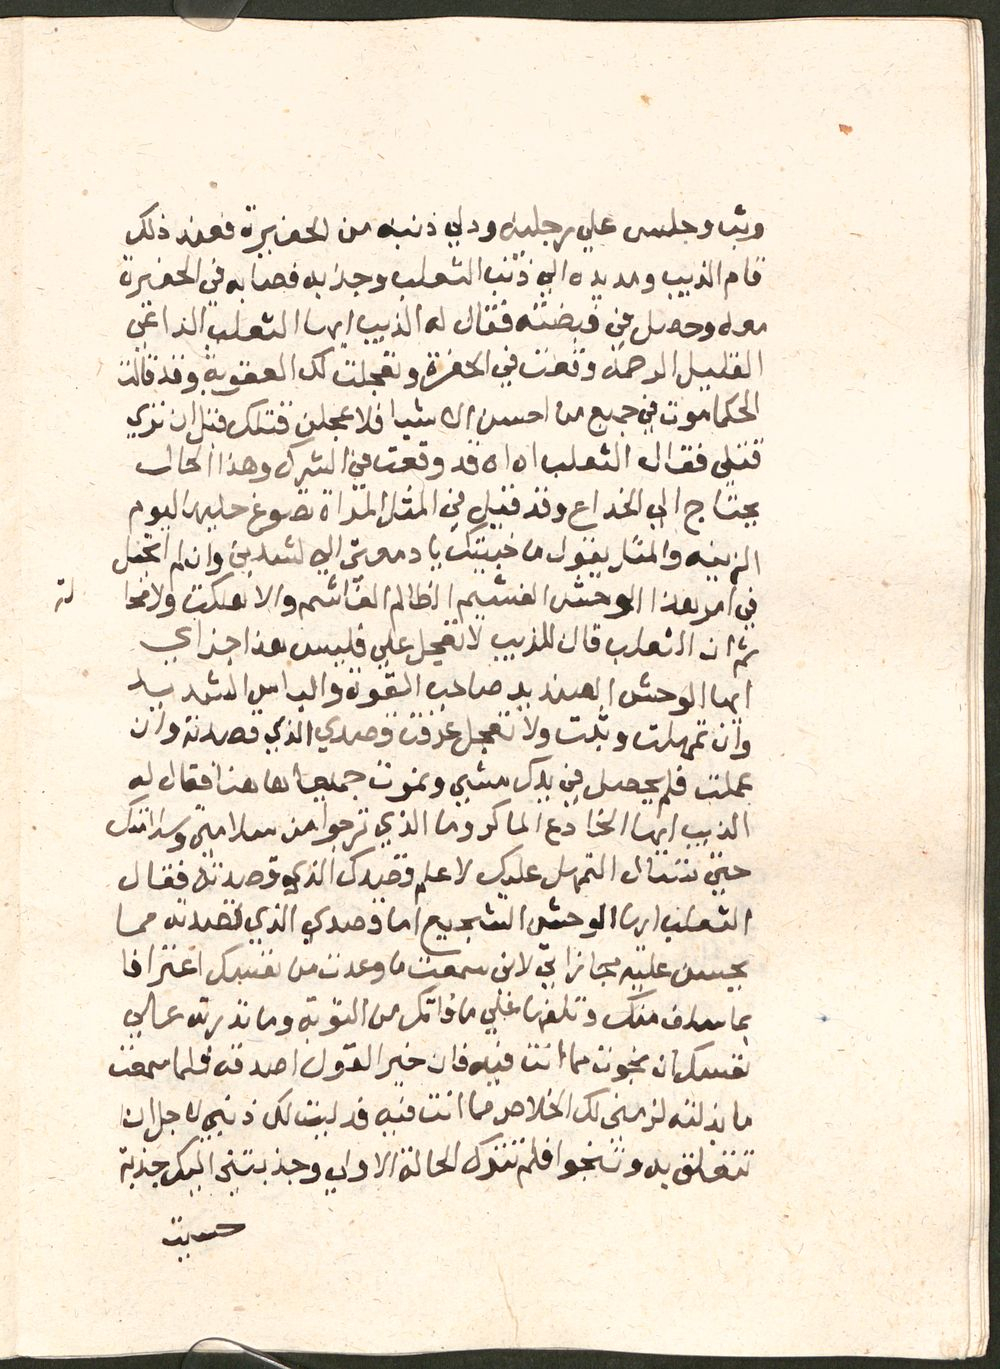 وثب وجلس علي رجليه ودلي ذنبه من الحفيرة فعند ذلك
قام الذيب ومد يده الي ذنب الثعلب وجذبه فصابه في الحفيرة
معه وحصل في قبضته فقال له الذيب ايها الثعلب الداعي
القليل الرحمة وقعت في الحفرة وتعجلت لك العقوبة وقد قالت
الحكما موت في جميع من احسن الاشيا فلا عجلن قتلك قبل ان تري
قتلي فقال الثعلب اه اه قد وقعت في الشرك وهذا الحال
يحتاج الي الخداع وقد قيل في المثل المراة تصوغ حليها ليوم
الزينه والمثل يقول ما خبيتك يا دمعتي الا لشدتي وان لم اتحيل
في امر هذا الوحش الغشيم الظالم الغاشم والا هلكت ولا محا
لة
ثم ان الثعلب قال للذيب لا تعجل علي فليس هذا جزاي
ايها الوحش الصنديد صاحب القوة والباس الشديد
وان تمهلت وثبت ولا تعجل عرفت قصدي الذي قصدته وان
عجلت فلم يحصل في يدك شيي ونموت جميعا هاهنا فقال له
الذيب ايها الخادع الماكر وما الذي ترجوا من سلامتي وسلامتك
حتي تسال التمهل عليك لاعلم قصدك الذي قصدته فقال
الثعلب ايها الوحش الشجيع اما قصدي الذي قصدته مما
يحسن عليه مجازاتي لاني سمعت ما وعدت من نفسك اعترافا
بما سلف منك وتلهفا علي ما فاتك من التوبة وما نذرته علي
نفسك ان نجوت مما انت فيه فان خير القول اصدقه فلما سمعت
ما بذلته لزمني لك الخلاص مما انت فيه فدليت لك ذنبي لاجل ان
تتعلق به وتنجوا فلم تترك الحالة الاولي وجذبتني اليك جذبة
حسبت